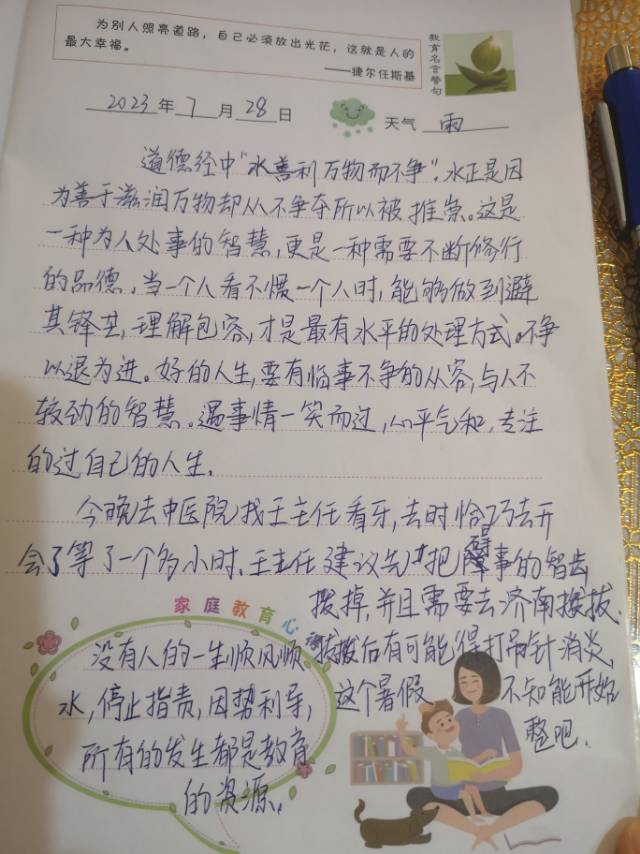 为别人照亮道路，自己必须放出光芒，这就是人的
最大幸福。
——捷尔任斯基
教育名言警句
2023年7月28日
天气 雨
道德经中"水善利万物而不争"。水正是因
为善于滋润万物却从不争夺所以被推崇。这是
一种为人处事的智慧，更是一种需要不断修行
的品德。当一个人看不惯一个人时，能够做到避
其锋芒，理解包容，才是最有水平的处理方式。不争
以退为进。好的人生，要有临事不争的从容，与人不
较劲的智慧。遇事情一笑而过，心平气和，专注
的过自己的人生。
今晚去中医院找王主任看牙，去时恰巧去开
会了等了一个多小时。王主任建议先把碍事的智齿
拨掉，并且需要去济南拨拔.
拨后有可能得打吊针消炎，
这个暑假 不知能开始
整吧.
家庭教育心
没有人的一生顺风顺
水，停止指责，因势利导，
所有的发生都是教育
的资源。